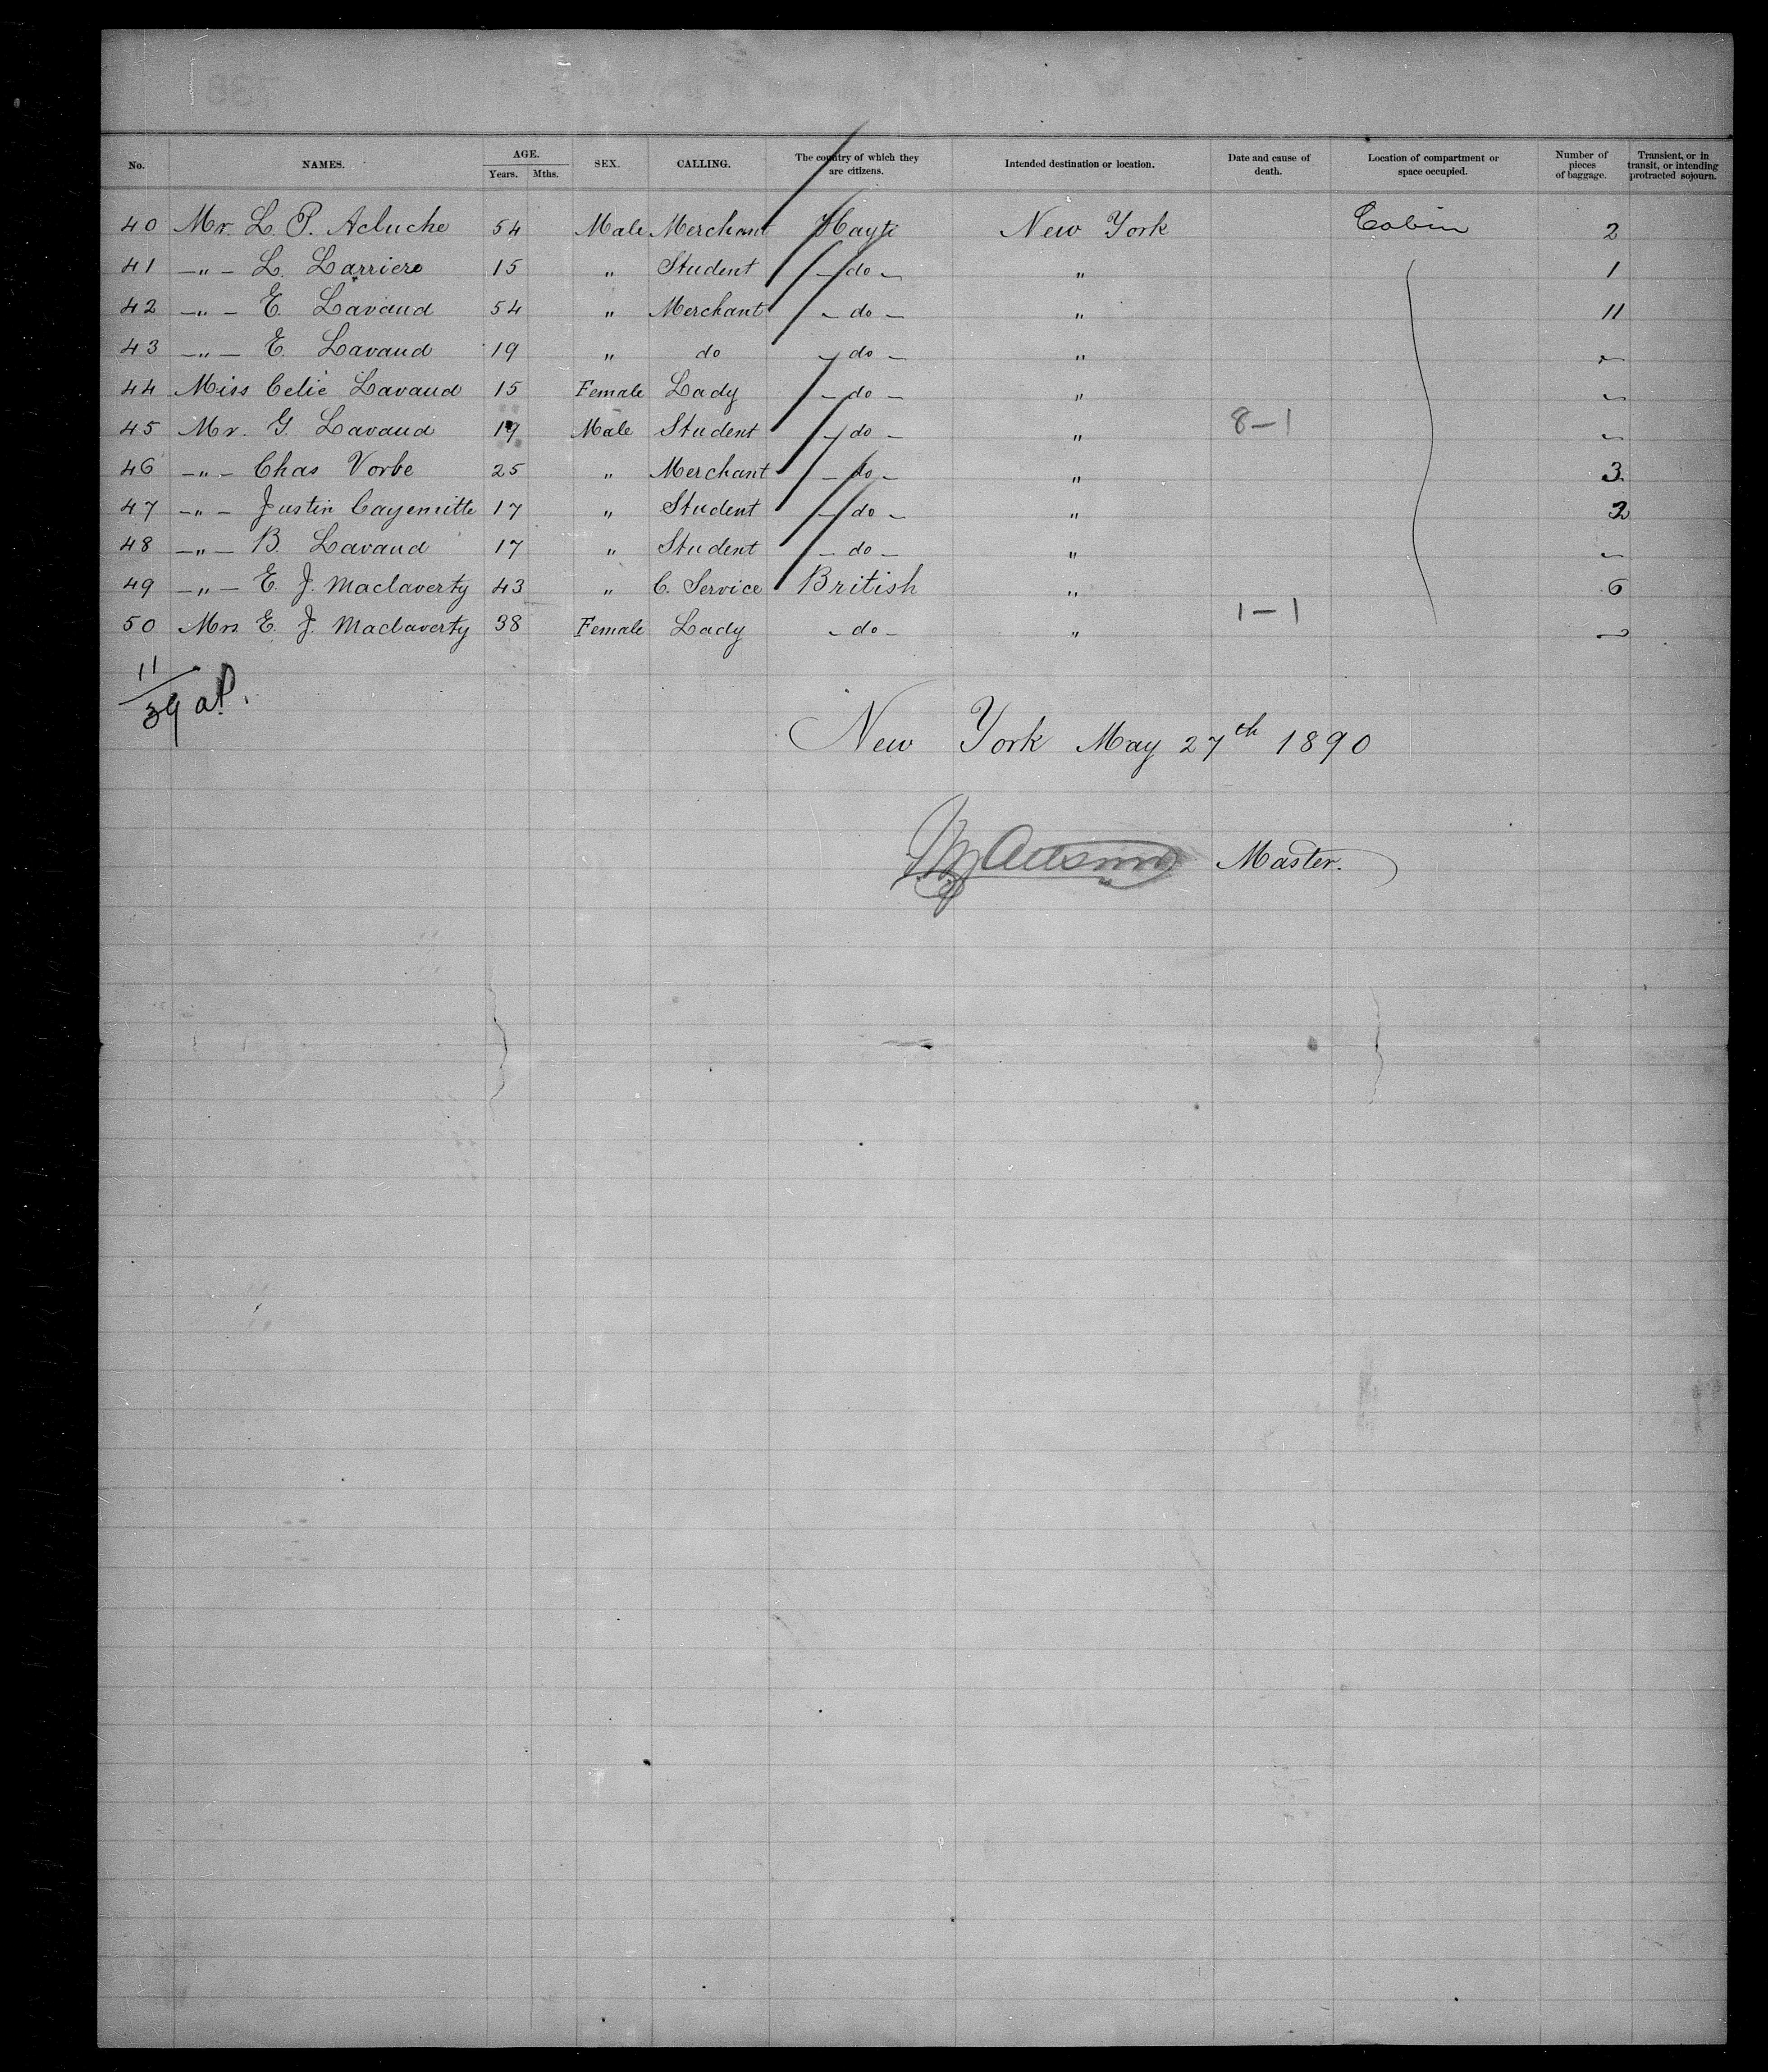 No. NAMES. AGE. Years. Mths. SEX. CALLING. The country of which they are citizens. Intended destination or location. Date and cause of death. Location of compartment or space occupied. Number of pieces of baggage. Transient, or in transit, or intending protracted sojourn.
40 Mr. L. P. Acluche 54 Male Merchant Hayti New York Cabin 2
41 –„– L. Larriere 15 „ Student – do – „ 1
42 –„– E. Lavaud 54 „ Merchant – do – „ 11
43 –„– E. Lavaud 19 „ do – do – „ –
44 Miss Celie Lavaud 15 Female Lady – do – „ –
45 Mr. G. Lavaud 19 Male Student – do – „ 8–1 –
46 –„– Chas Vorbe 25 „ Merchant – do – „ 3
47 –„– Justin Cayemitte 17 „ Student – do – „ 2
48 –„– B. Lavaud 17 „ Student – do – „ –
49 –„– E. J. Maclaverty 43 „ C. Service British „ 6
50 Mrs. E. J. Maclaverty 38 Female Lady – do – „ 1–1 –
11
39 al.
New York May 27th 1890
Master.